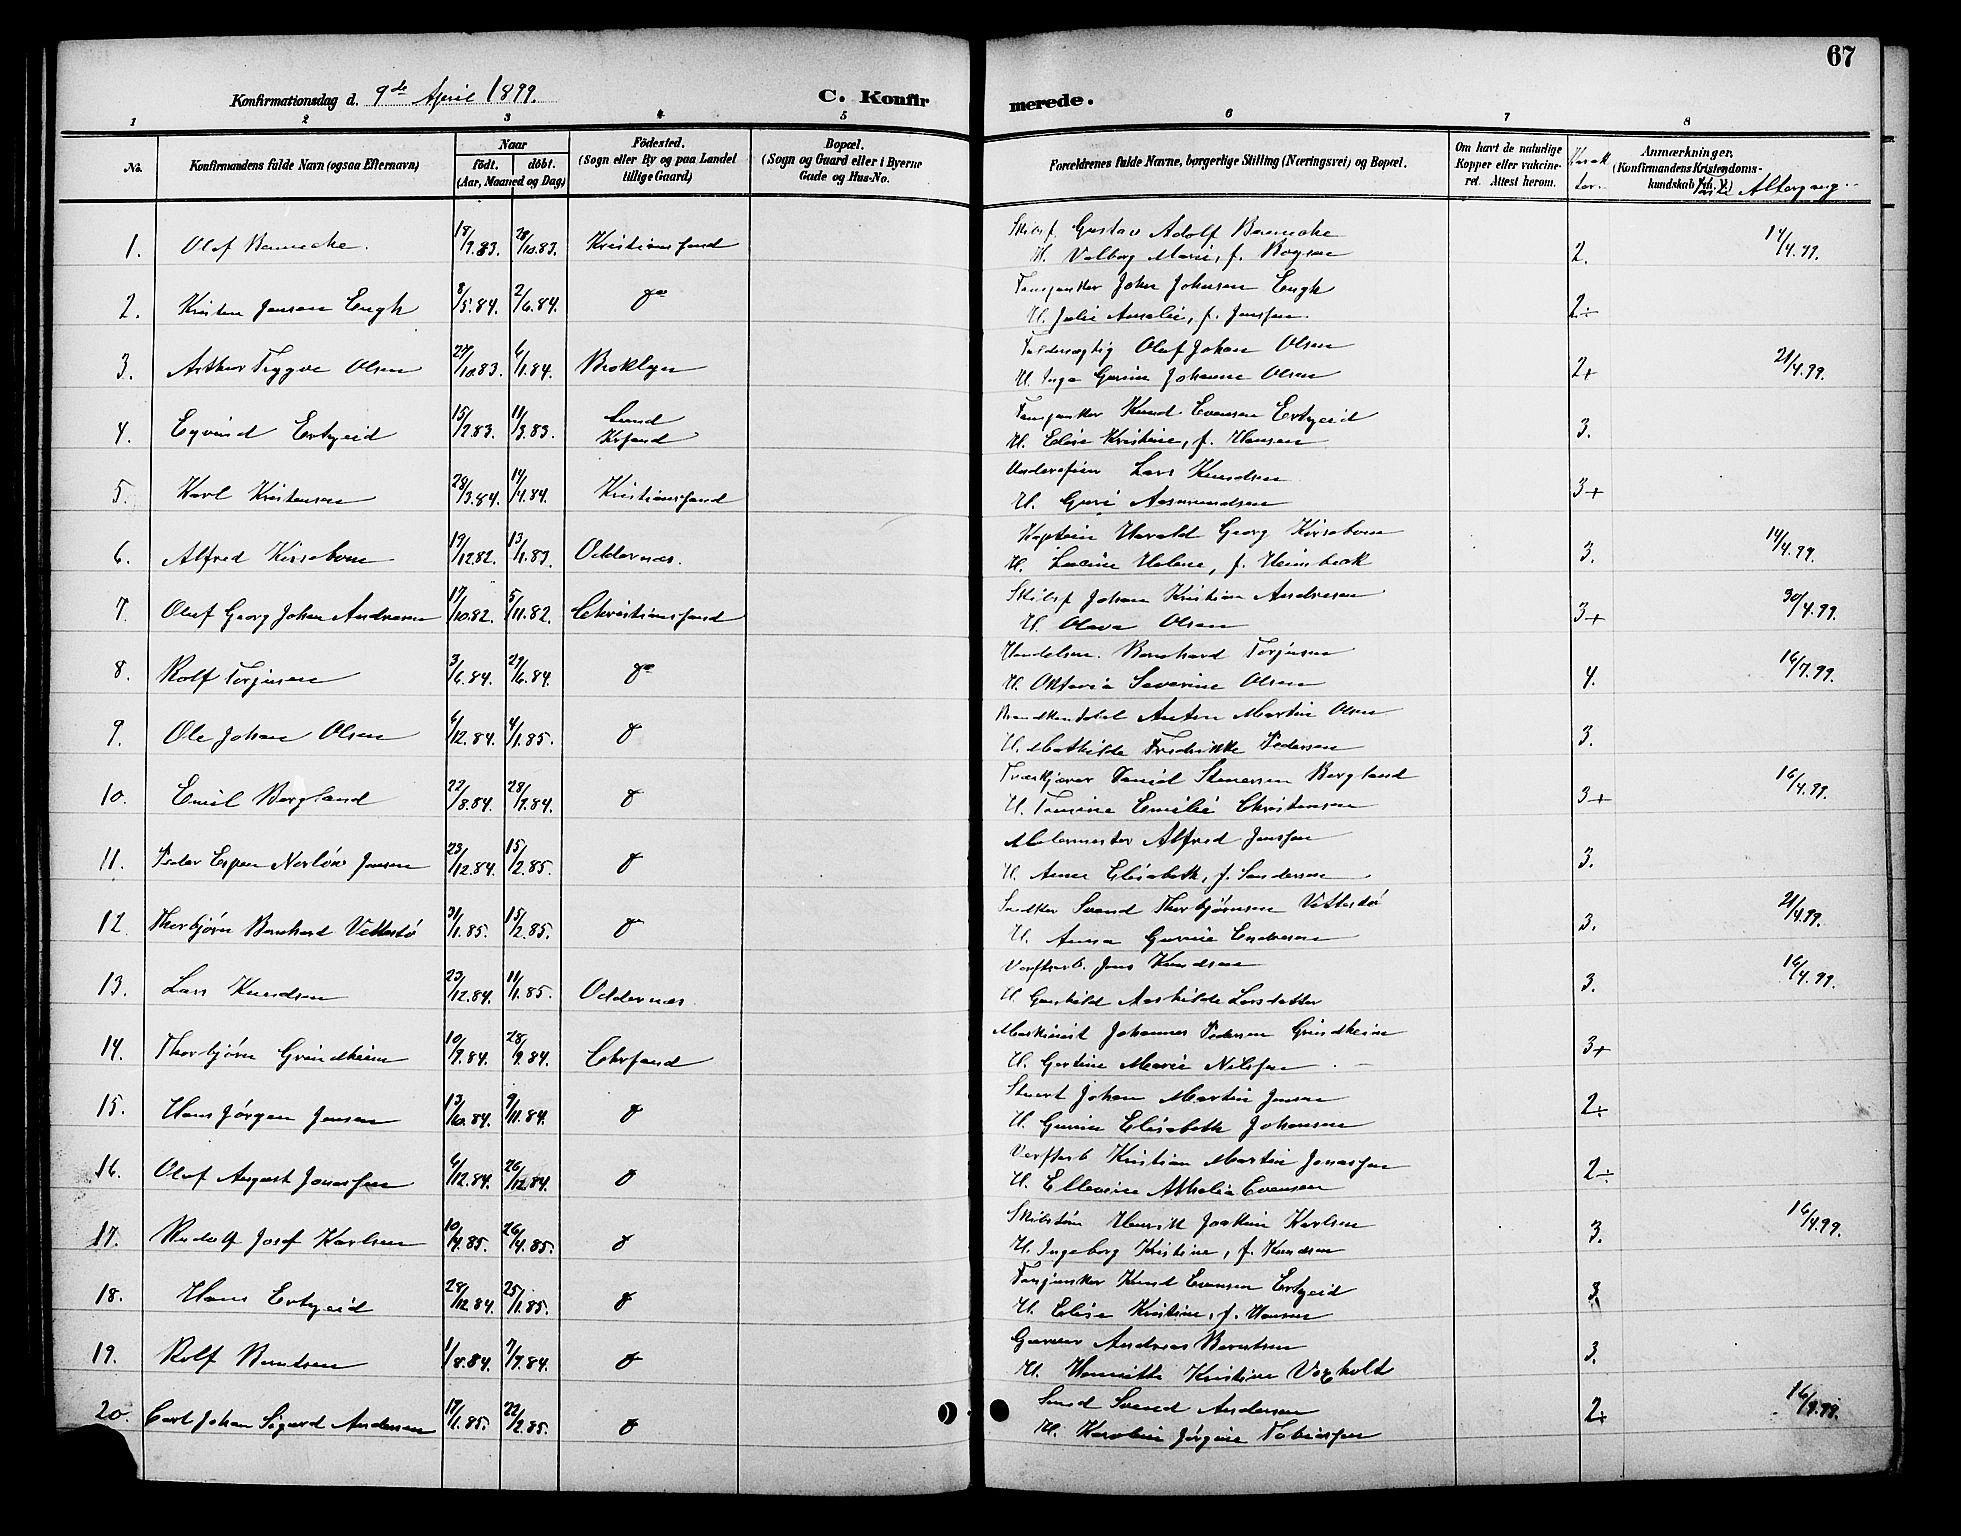 67
Konfirmationsdag d. 9de April 1899.
C. Konfirmerede.
1 2 3 4 5 6 7 8
No.
Konfirmandens fulde Navn (ogsaa Efternavn)
Naar
födt. döbt.
(Aar, Maaned og Dag)
Födested.
(Sogn eller By og paa Landet
tillige Gaard.)
Bopæl.
(Sogn og Gaard eller i Byerne
Gade og Hus-No.
Forældrenes fulde Navne, borgerlige Stilling (Næringsvei) og Bopæl.
Om havt de naturlige
Kopper eller vakcine-
ret. Attest herom.
Karak
ter.
Anmærkninger.
(Konfirmandens Kristendoms-
kundskab m. V.)
Förste Altergang
1. Olaf Bennecke. 18/9.83. 28/10.83. Kristianssand
Skibsf. Gustav Adolf Bennecke 14/4.99.
H. Valborg Marie, f. Boysen 2.
2. Kristen Jensen Engh 8/5.84. 2/6.84. do
John Johnsen Engh
H. Julie Amalie, f. Jenssen. 2÷
3. Arthur Trygve Olsen 27/10.83. 6/1.84. Broklyn
Oluf Johan Olsen
H. Inga Gurine Johanne Olsen 2+ 21/4.99.
4. Eyvind Ertzeid 15/2.83. 11/3.83. Lund
Krsand
Knud Evensen Ertzeid
H. Elise Kristine, f. Hansen 3.
5. Karl Kristensen 28/3.84. 14/4.84. Kristianssand
Lars Knudsen
H. Guri Aasmundsen 3+
6. Alfred Kirsebom 19/12.82. 13/1.83. Oddernæs.
Kaptein Harald Georg Kirsebom 14/4.99.
H. Lucine Helene, f. Heimbeck 3.
7. Oluf Georg Johan Andresen 17/10.82. 5/11.82. Christianssand
Skibsf Johan Kristian Andresen 30/4.99.
H. Olava Olsen 3+
8. Rolf Torjusen 3/6.84. 29/6.84. do
Handelsm. Bernhard Torjusen 16/7.99.
H. Oktavia Severine Olsen 4.
9. Ole Johan Olsen 6/12.84. 4/1.85. do
Brandkonstabel Anton Martin Olsen
H. Mathilde Fredrikke Pedersen 3.
10. Emil Bergland 22/8.84. 28/9.84. do
Daniel Stenersen Bergland 16/4.99.
H. Tomine Emilie Christensen 3+
11. Peder Espen Norløw Jensen 23/12.84. 15/2.85. do
Malermester Alfred Jenssen
H. Anne Elisabeth, f. Sandersen 3.
12. Thorbjørn Bernhard Vettestø 31/1.85. 15/2.85. do
Snedker Svend Thorbjørnsen Vettestø 21/4.99.
H. Anna Gurine Endresen 3.
13. Lars Knudsen 23/12.84. 11/1.85. Oddernæs.
Verftsarb. Jens Knudsen 16/4.99.
H Gunhild Aashilde Larsdatter 3.
14. Thorbjørn Grindheim 10/9.84. 28/9.84. Chrsand
Maskinist Johannes Pedersen Grindheim
H. Gertine Marie Nilssen 3+
15. Hans Jørgen Jensen 13/10.84. 9/11.84. do
Stuert Johan Martin Jensen
H. Gurine Elisabeth Johansen 2÷
16. Olaf August Jonassen 6/12.84. 26/12.84. do
Verftarb Kristian Martin Jonassen
H. Ellevine Athalia Evensen 2÷
17. Rudolf Josef Karlsen 10/4.85. 26/4.85. do
Skibstöm Henrik Joakim Karlsen 16/4.99.
H. Ingeborg Kristine, f. Knudsen 3.
18. Hans Ertzeid 28/12.84. 25/1.85. do
Knud Evensen Ertzeid
H. Elise Kristine, f. Hansen 3.
19. Rolf Berntsen 1/8.84. 7/9.84. do
Garver Andreas Berntsen
H. Henriette Kristine Voxholt 3.
20. Carl Johan Sigurd Andersen 17/1.85. 22/2.85. do
Smed Svend Andersen 16/4.99.
H. Karoline Jörgine Tobiassen 2+